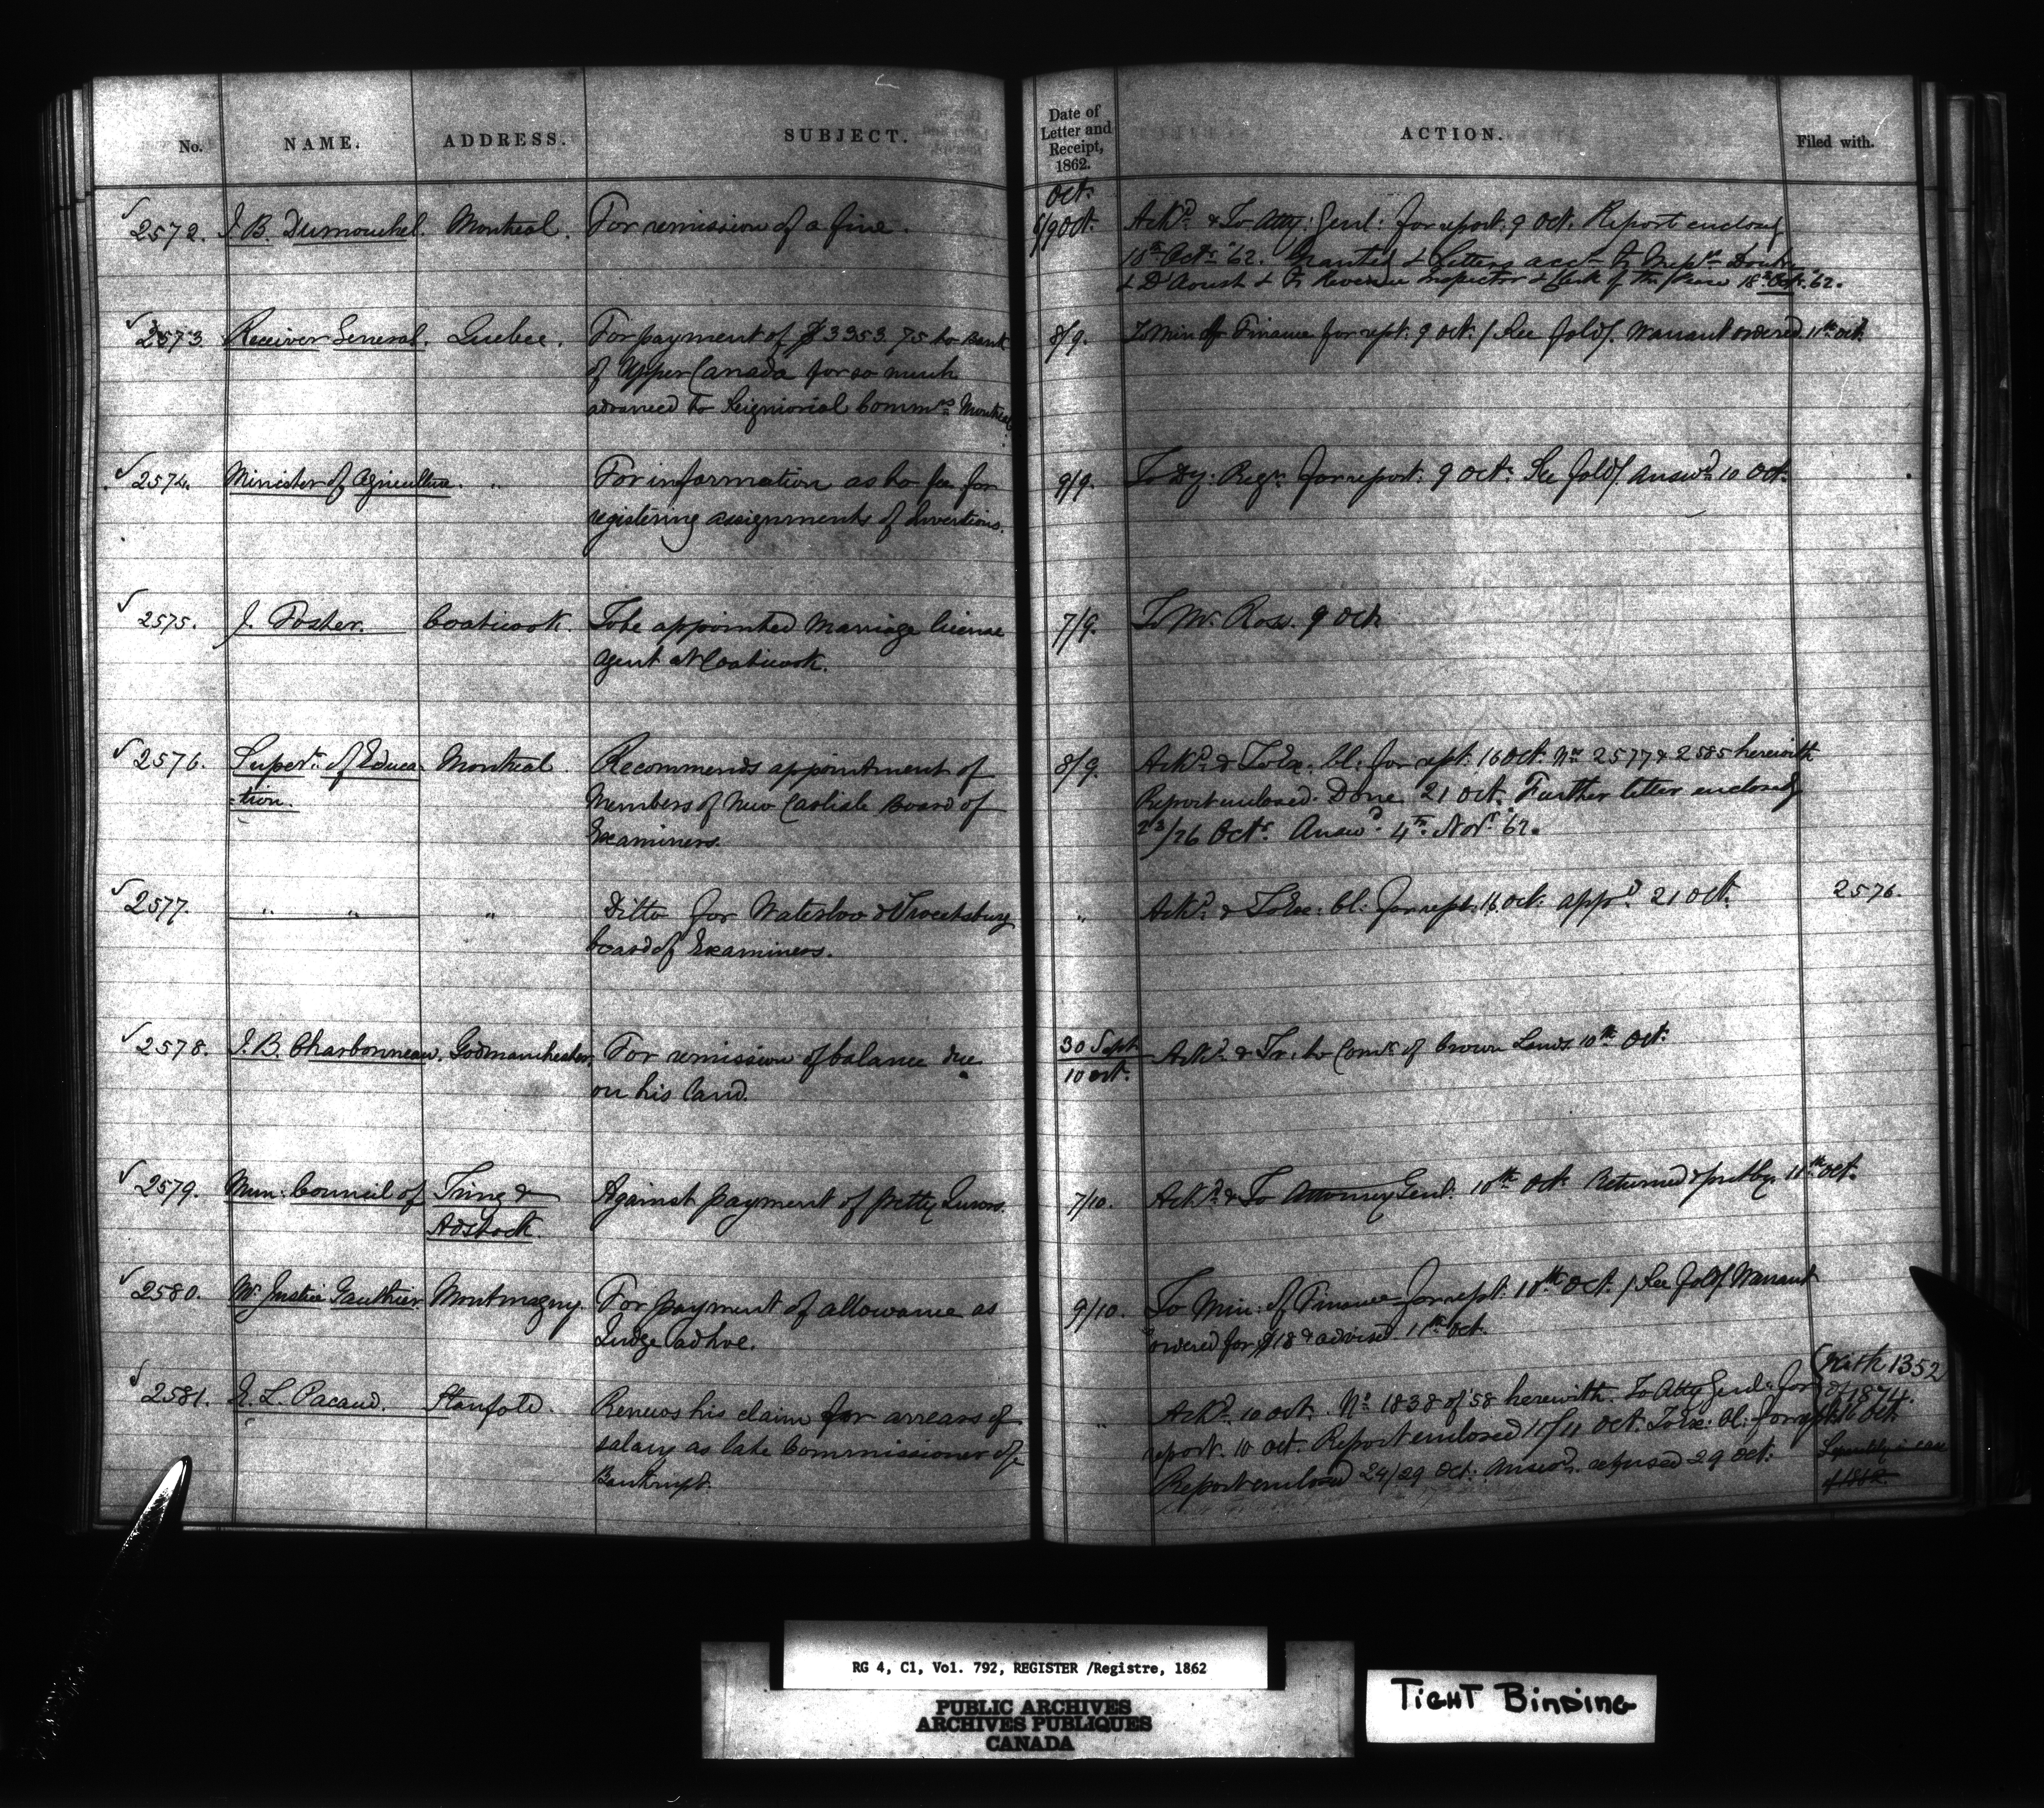 No. NAME. ADDRESS. SUBJECT. Date of Letter and Receipt, 1862. ACTION. Filed with.
Oct.
2572. J. B. Dumouchel. Montreal. For remission of a fine. 6/9 Oct. Ackd. & To Atty: Genl: for report. 9 Oct. Report enclosed
18th Octr '62. Granted & Letters acc
& D'Aoust & to Revenue Inspector & Clerk of the Peace 18th Oct. '62.
2573 Receiver General. Quebec. For payment of $3353.75 to Bank 8/9. To Min of Finance for rept. 9 Oct. / See fold/. Warrant ordered. 11th Oct.
of Upper Canada for so much
advanced to Seigniorial Commrs Montreal.
2574. Minister of Agriculture. " For information as to fee for 9/9. To Dy: Regr. for report. 9 Oct. See fold/. Answd. 10 Oct.
registering assignments of Inventions.
2575. J. Foster. Coaticook. To be appointed Marriage license 7/9. To Mr. Ross. 9 Oct.
Agent at Coaticook.
2576. Supert. of Educa- Montreal. Recommends appointment of 8/9. Ackd. & To Ex: Cl: for rept. 16 Oct. Nos 2577 & 2585 herewith
=tion. Members of New Carlisle Board of Report enclosed. Done 21 Oct. Further letter enclosed
Examiners. 23/26 Octr. Answd. 4th Novr '62.
2577. " " " Ditto for Waterloo & Sweetsburg " Ackd. & To Ex: Cl: for rept. 16 Oct. appd. 21 Oct. 2576.
board of Examiners.
2578. J. B. Charbonneau. Godmanchester. For remission of balance due 30 Sept/10 Oct. Ackd. & Tr: to Comr. of Crown Lands. 10th Oct.
on his land.
2579. Mun: Council of Tring & Against payment of petty Jurors. 7/10. Ackd. & To Attorney Genl. 10th Oct. Returned & put by. 11th Oct.
Adstock.
2580. Mr. Justice Gauthier Montmagny. For payment of allowance as 9/10. To Min: of Finance for rept. 10th Oct. / See fold/. Warrant
Judge ad hoc. ordered for $18 & advised 11th Oct.
2581. E. L. Pacaud. Stanfold. Renews his claim for arrears of " Ackd. 10 Oct. No 1838 of '58 herewith. To Atty Genl. for (With 1352
salary as late Commissioner of report. 10 Oct. Report enclosed 11/11 Oct. To Ex: Cl: for rept. 16 Oct. of 1874.
Bankrupt. Report enclosed 24/29 Oct: Answd. refused 29 Oct.
RG 4, C1, Vol. 792, REGISTER /Registre, 1862
PUBLIC ARCHIVES
ARCHIVES PUBLIQUES
CANADA
TIGHT BINDING